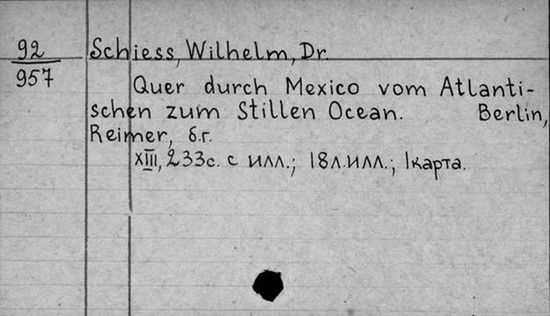 92
957
Schiess, Wilhelm, Dr.
Quer durch Mexico vom Atlanti-
schen zum Stillen Ocean. Berlin,
Reimer, б.г.
XIII, 233с. с илл.; 18л.илл.; 1карта.